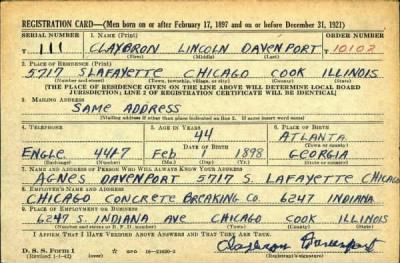 REGISTRATION CARD—(Men born on or after February 17, 1897 and on or before December 31, 1921)
SERIAL NUMBER 1. NAME (Print) ORDER NUMBER
T 111 CLAYBRON LINCOLN DAVENPORT 10102
(First) (Middle) (Last)
2. PLACE OF RESIDENCE (Print)
5717 S LAFAYETTE CHICAGO COOK ILLINOIS
(Number and street) (Town, township, village, or city) (County) (State)
[THE PLACE OF RESIDENCE GIVEN ON THE LINE ABOVE WILL DETERMINE LOCAL BOARD
JURISDICTION; LINE 2 OF REGISTRATION CERTIFICATE WILL BE IDENTICAL]
3. MAILING ADDRESS
SAME ADDRESS
(Mailing address if other than place indicated on line 2. If same insert word same)
4. TELEPHONE 5. AGE IN YEARS 6. PLACE OF BIRTH
44 ATLANTA
DATE OF BIRTH (Town or county)
ENGLE 4447 Feb 1 1898 GEORGIA
(Exchange) (Number) (Mo.) (Day) (Yr.) (State or country)
7. NAME AND ADDRESS OF PERSON WHO WILL ALWAYS KNOW YOUR ADDRESS
AGNES DAVENPORT 5717 S LAFAYETTE CHICAGO
8. EMPLOYER'S NAME AND ADDRESS
CHICAGO CONCRETE BREAKING CO. 6247 INDIANA
9. PLACE OF EMPLOYMENT OR BUSINESS
6247 S. INDIANA AVE CHICAGO COOK ILLINOIS
(Number and street or R. F. D. number) (Town) (County) (State)
I AFFIRM THAT I HAVE VERIFIED ABOVE ANSWERS AND THAT THEY ARE TRUE.
D. S. S. Form 1
(Revised 1-1-42) (over)
Claybron Davenport
(Registrant's signature)